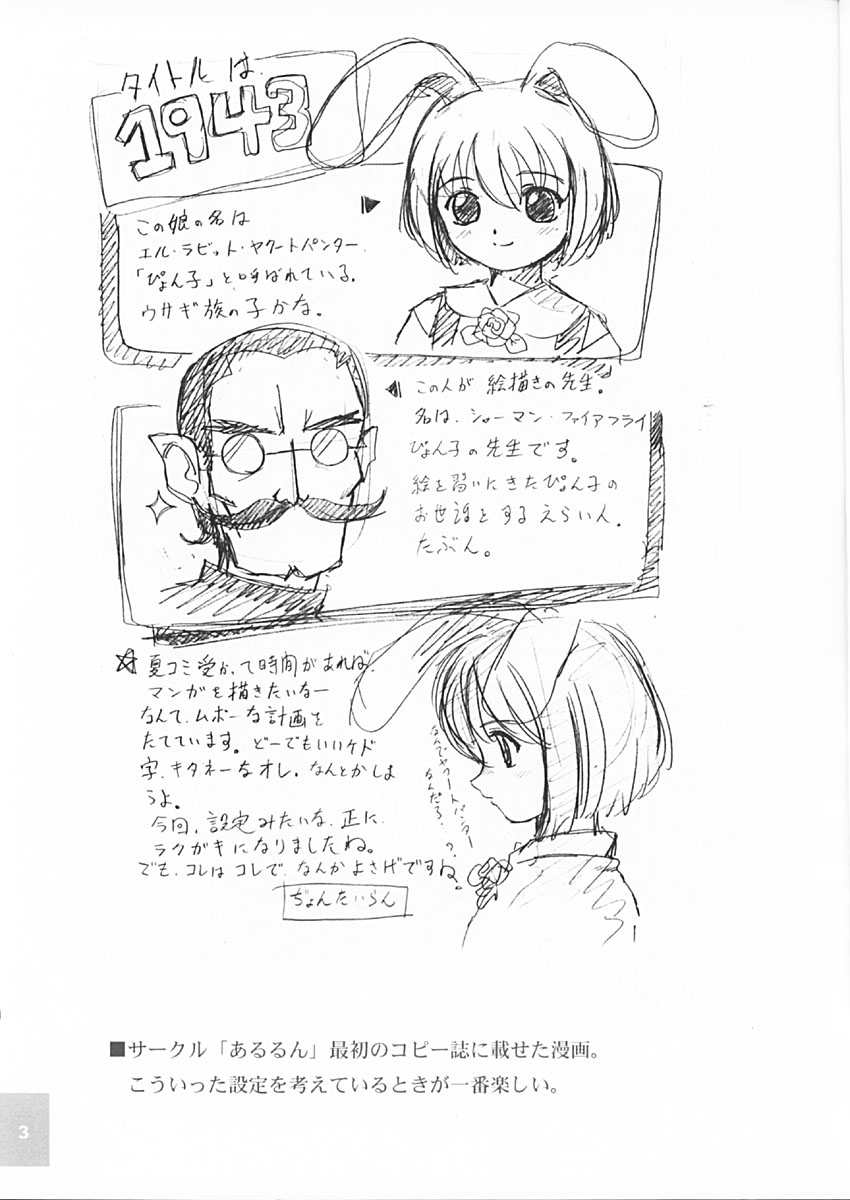 タイトルは
1943
この娘の名は
エル・ラビット・ヤクートパンター.
「ぴょん子」と呼ばれている.
ウサギ族の子かな。
この人が 絵描きの先生。
名は、シャーマン・ファイアフライ
ぴょん子の先生です。
絵を習いにきたぴょん子の
お世話とするえらい人.
たぶん。
☆夏コミ受かって時間があれば、
マンガを描きたいなー
なんて、ムボーな計画を
たてています。どーでもいいケド
字、キタネーなオレ。なんとかしま
うよ。
今回、設定みたいな、正に、
ラクガキになりましたね。
でも、コレはコレで、なんかよさげですね。
なんでヤクートパンター
なんだろ・・?
ぢょんたいらん
■サークル「あるるん」最初のコピー誌に載せた漫画。
こういった設定を考えているときが一番楽しい。
3